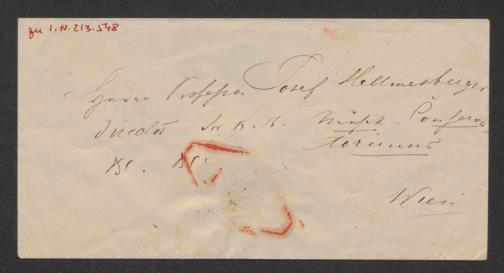 zu I.N. 213.548
Herrn Professor Josef Hellmesberger
Director des K. K. Musik-Conserva
toriums
Wien